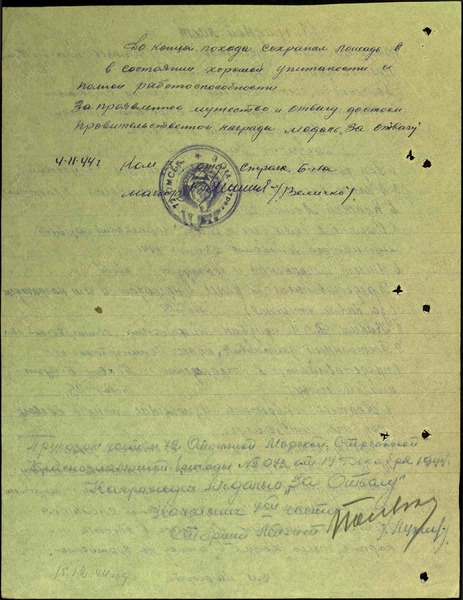 До конца похода сохранал лошадь в
в состоянии хорошей упитаности и
полной работоспособности
За проявленое мужество и отвагу достоен
правительственое награды медаль „За отвагу“
4-11-44 г. Ком Стрелк. б-на
майор /Величко/.
Приказом частям 72 Отдельной Морской Стрелковой
Краснознаменной бригады № 073 от 14 Декабря 1944
Награжден Медалью „За Отвагу“
Начальник 4ой части
Старший Лейтенант
15.12.44 г